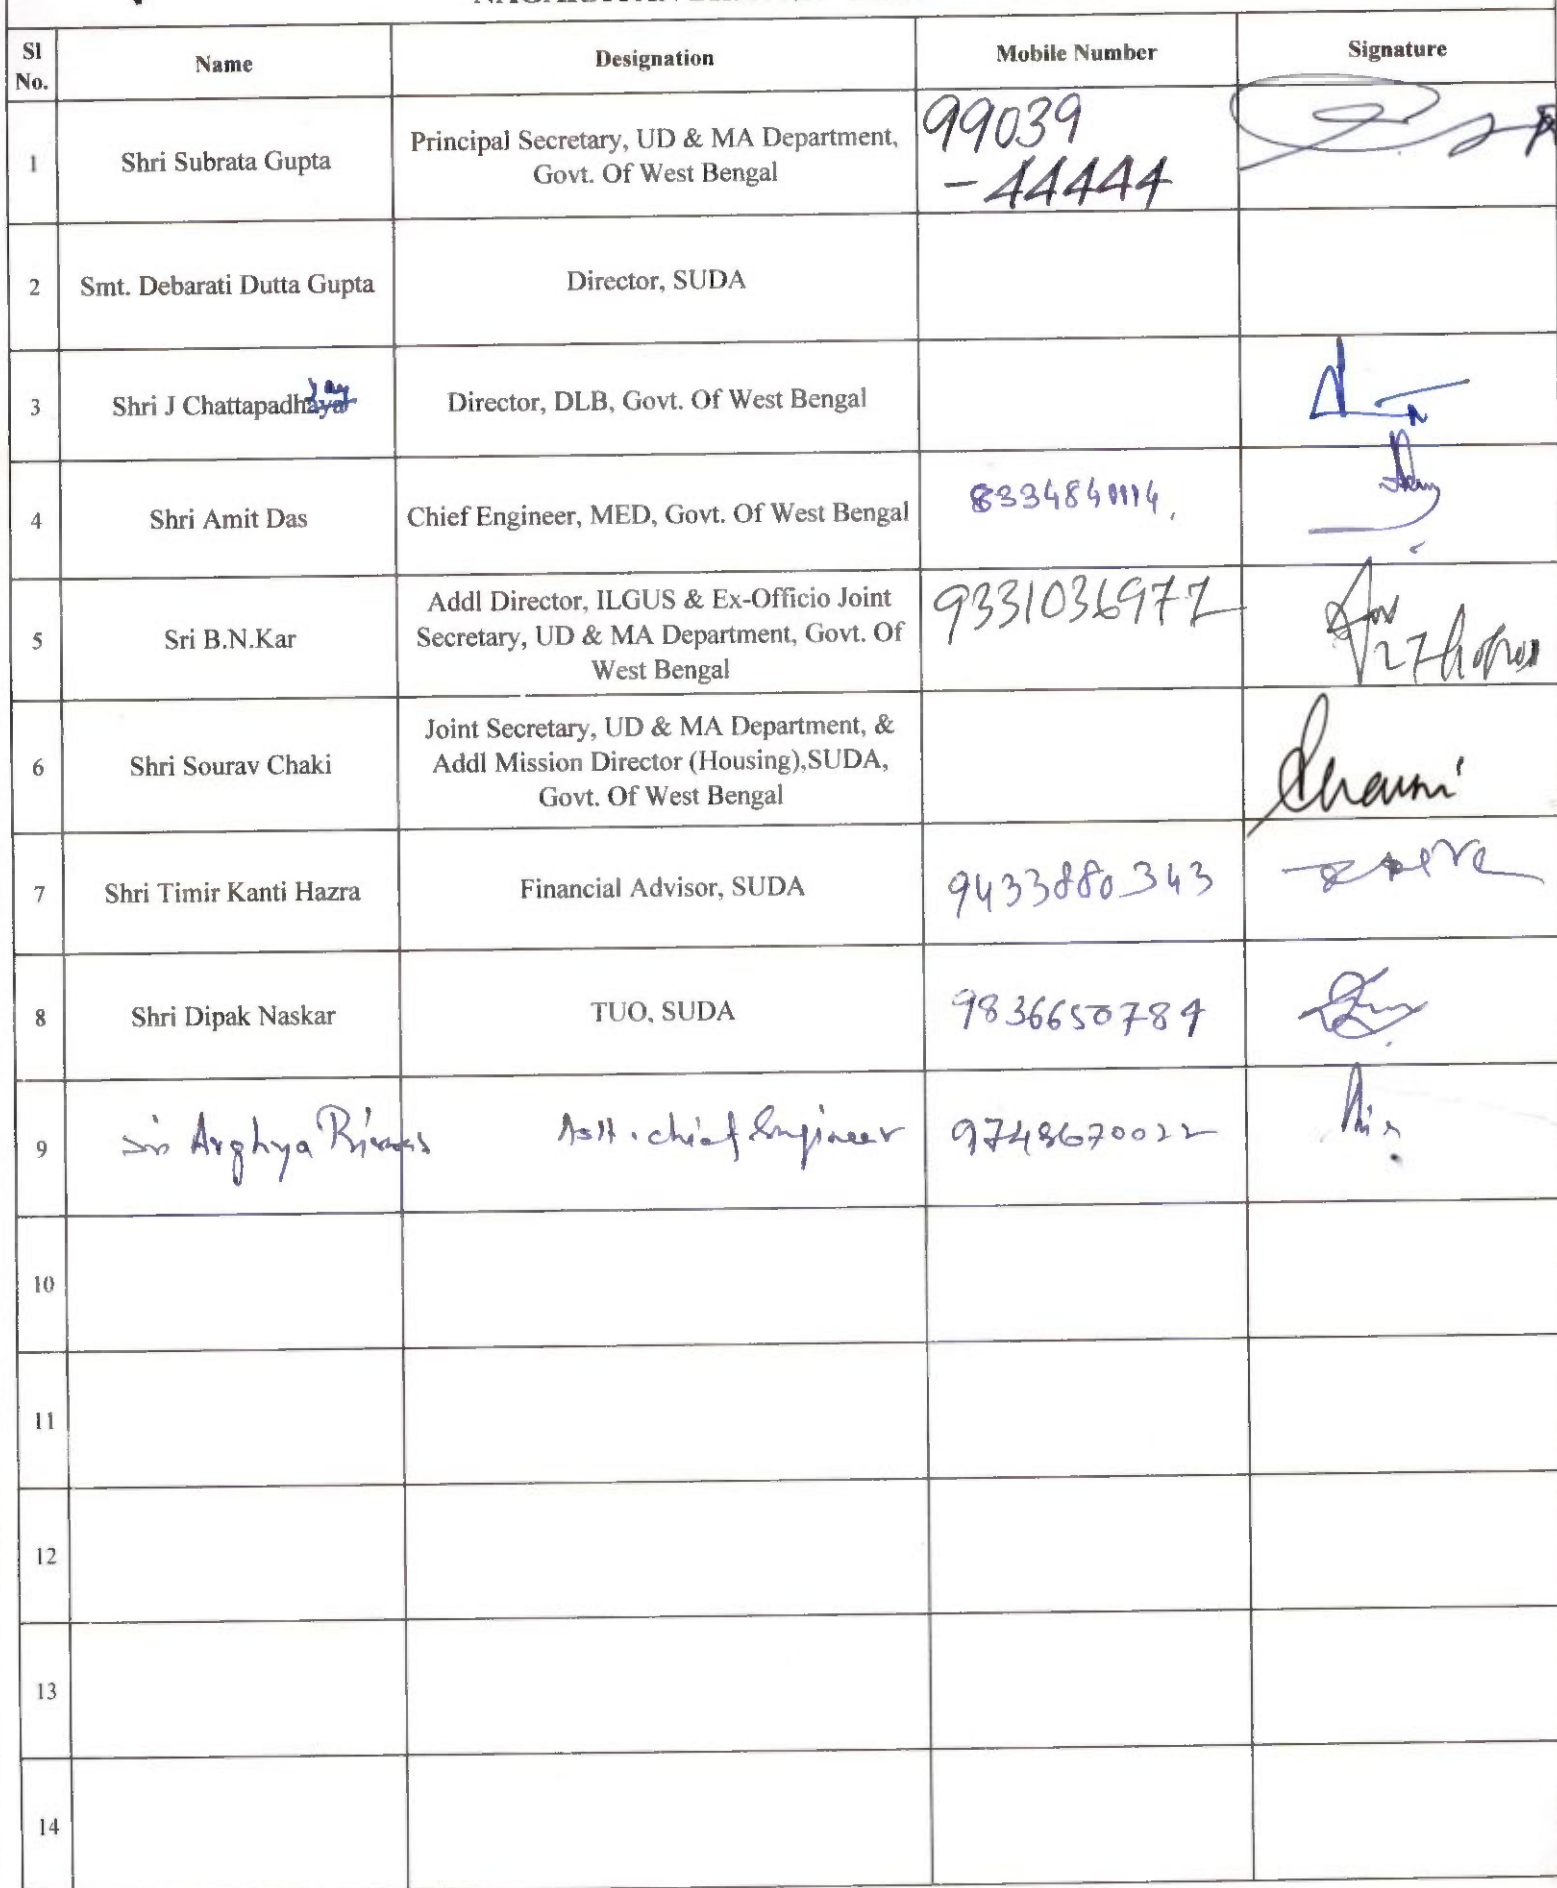 Sl No.
Name
Designation
Mobile Number
Signature
1
Shri Subrata Gupta
Principal Secretary, UD & MA Department,
Govt. Of West Bengal
99039
- 44444
2
Smt. Debarati Dutta Gupta
Director, SUDA
3
Shri J Chattapadhayay
Director, DLB, Govt. Of West Bengal
4
Shri Amit Das
Chief Engineer, MED, Govt. Of West Bengal
5
Sri B.N.Kar
Addl Director, ILGUS & Ex-Officio Joint
Secretary, UD & MA Department, Govt. Of
West Bengal
9331036977
6
Shri Sourav Chaki
Joint Secretary, UD & MA Department, &
Addl Mission Director (Housing),SUDA,
Govt. Of West Bengal
7
Shri Timir Kanti Hazra
Financial Advisor, SUDA
9433880343
8
Shri Dipak Naskar
TUO, SUDA
9836650784
9
Sri Arghya Biswas
Asst. chief Engineer
9748670022
10
11
12
13
14